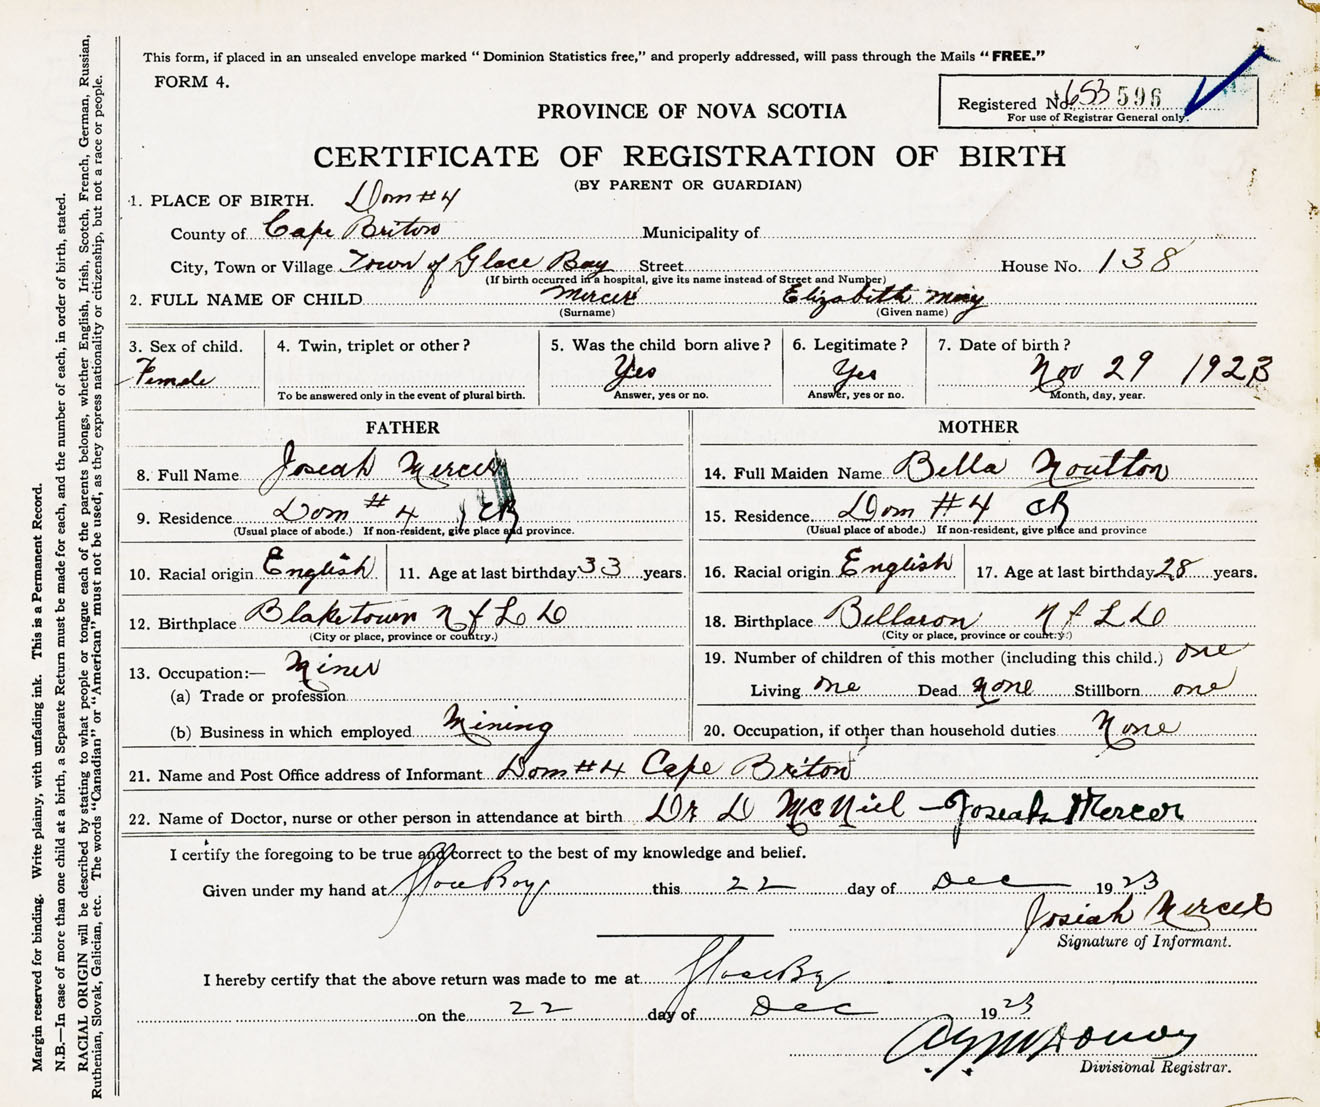 This form, if placed in an unsealed envelope marked “ Dominion Statistics free,” and properly addressed, will pass through the Mails “ FREE.”
FORM 4.
Registered No. 653 596
For use of Registrar General only.
PROVINCE OF NOVA SCOTIA
CERTIFICATE OF REGISTRATION OF BIRTH
(BY PARENT OR GUARDIAN)
1. PLACE OF BIRTH. Dom # 4
County of Cape Briton Municipality of
City, Town or Village Town of Glace Bay Street House No. 138
(If birth occurred in a hospital, give its name instead of Street and Number)
2. FULL NAME OF CHILD Mercer Elizabeth Mary
(Surname) (Given name)
3. Sex of child. 4. Twin, triplet or other ? 5. Was the child born alive ? 6. Legitimate ? 7. Date of birth ?
Female Yes Yes Nov 29 1923
To be answered only in the event of plural birth. Answer, yes or no. Answer, yes or no. Month, day, year.
FATHER MOTHER
8. Full Name Josiah Mercer
9. Residence Dom # 4 CB
(Usual place of abode.) If non-resident, give place and province.
10. Racial origin English 11. Age at last birthday 33 years.
12. Birthplace Blaketown Nf L D
(City or place, province or country.)
13. Occupation:— Miner
(a) Trade or profession
(b) Business in which employed Mining
14. Full Maiden Name Bella Noutton
15. Residence Dom # 4 CB
(Usual place of abode.) If non-resident, give place and province
16. Racial origin English 17. Age at last birthday 28 years.
18. Birthplace Bellaron Nf L D
(City or place, province or country.)
19. Number of children of this mother (including this child.) one
Living one Dead none Stillborn one
20. Occupation, if other than household duties None
21. Name and Post Office address of Informant Dom # 4 Cape Briton
22. Name of Doctor, nurse or other person in attendance at birth Dr D McNiel – Josiah Mercer
I certify the foregoing to be true and correct to the best of my knowledge and belief.
Given under my hand at Glace Bay this 22 day of Dec 1923
Josiah Mercer
Signature of Informant.
I hereby certify that the above return was made to me at Glace Bay
on the 22 day of Dec 1923
Divisional Registrar.
Margin reserved for binding. Write plainly, with unfading ink. This is a Permanent Record.
N.B.—In case of more than one child at a birth, a Separate Return must be made for each, and the number of each, in order of birth, stated.
RACIAL ORIGIN will be described by stating to what people or tongue each of the parents belongs, whether English, Irish, Scotch, French, German, Russian,
Ruthenian, Slovak, Galician, etc. The words “Canadian” or “American” must not be used, as they express nationality or citizenship, but not a race or people.